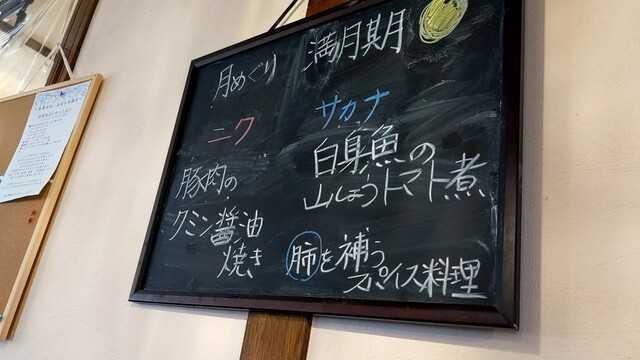 月めぐり 満月期
ニク
豚肉の
クミン醤油
焼き
サカナ
白身魚の
山しょうトマト煮
肺を補う
スパイス料理